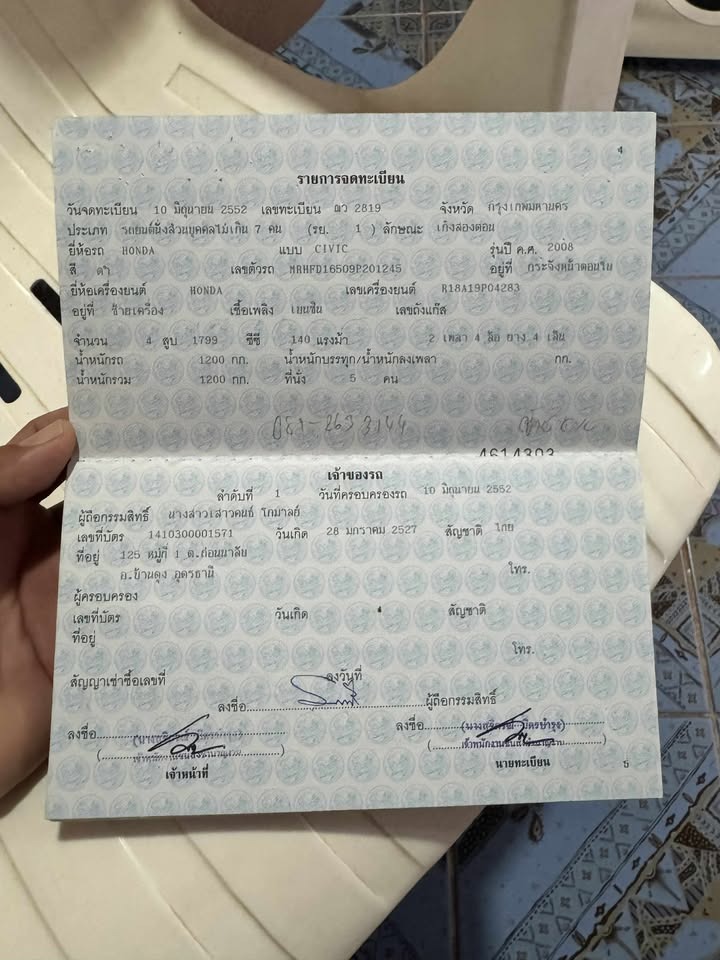 4
รายการจดทะเบียน
วันจดทะเบียน 10 มิถุนายน 2552 เลขทะเบียน ฌว 2819 จังหวัด กรุงเทพมหานคร
ประเภท รถยนต์นั่งส่วนบุคคลไม่เกิน 7 คน (รย. 1 ) ลักษณะ เก๋งสองตอน
ยี่ห้อรถ HONDA แบบ CIVIC รุ่นปี ค.ศ. 2008
สี ดำ เลขตัวรถ MRHFD16509P201245 อยู่ที่ กระจังหน้าตอนใน
ยี่ห้อเครื่องยนต์ HONDA เลขเครื่องยนต์ R18A19P04283
อยู่ที่ ซ้ายเครื่อง เชื้อเพลิง เบนซิน เลขถังแก๊ส
จำนวน 4 สูบ 1799 ซีซี 140 แรงม้า 2 เพลา 4 ล้อ ยาง 4 เส้น
น้ำหนักรถ 1200 กก. น้ำหนักบรรทุก/น้ำหนักลงเพลา กก.
น้ำหนักรวม 1200 กก. ที่นั่ง 5 คน
4614303
เจ้าของรถ
ลำดับที่ 1 วันที่ครอบครองรถ 10 มิถุนายน 2552
ผู้ถือกรรมสิทธิ์ นางสาวเสาวคนธ์ โกมาลย์
เลขที่บัตร 1410300001571 วันเกิด 28 มกราคม 2527 สัญชาติ ไทย
ที่อยู่ 125 หมู่ที่ 1 ต.ถ่อนนาลับ
อ.บ้านดุง อุดรธานี โทร.
ผู้ครอบครอง
เลขที่บัตร วันเกิด สัญชาติ
ที่อยู่
โทร.
สัญญาเช่าซื้อเลขที่ ลงวันที่
ลงชื่อ ผู้ถือกรรมสิทธิ์
ลงชื่อ ลงชื่อ
เจ้าหน้าที่ นายทะเบียน
5